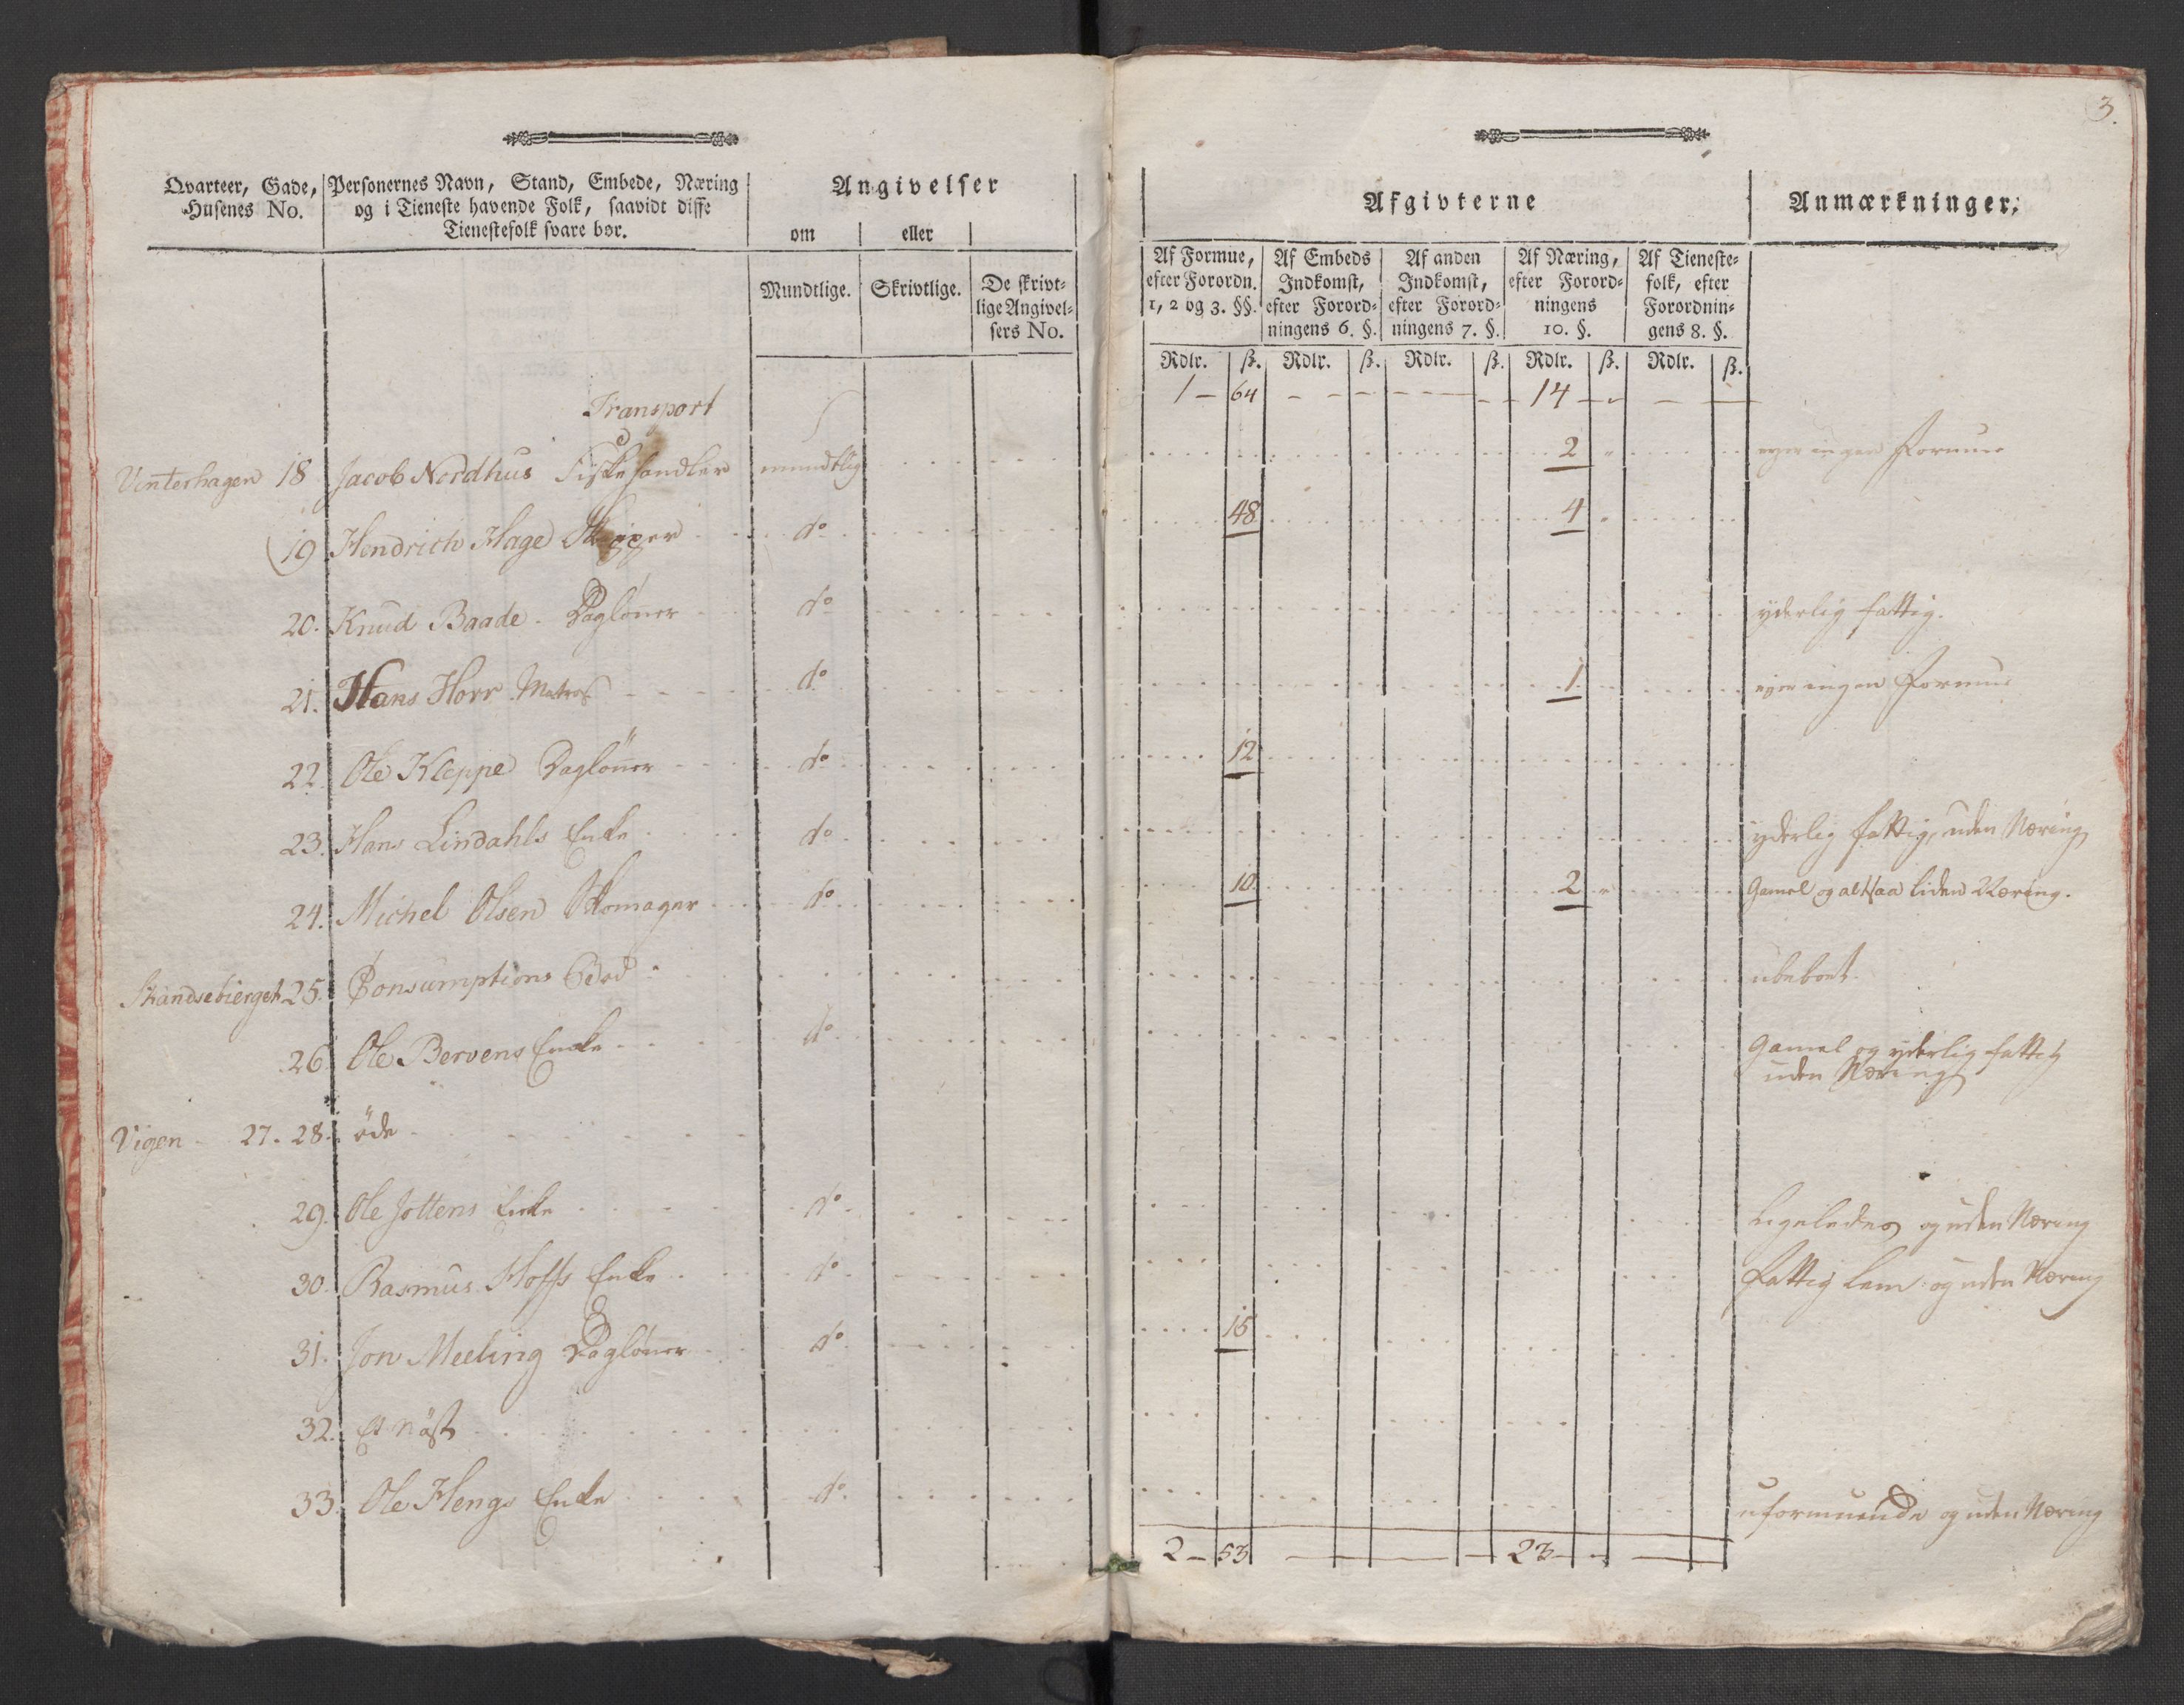 3.
Qvarteer, Gade, Husenes No. | Personernes Navn, Stand, Embede, Næring og i Tieneste havende Folk, saavidt disse Tienestefolk svare bør. | Angivelser | Afgivterne | Anmærkninger.
om | eller
Mundtlige. | Skrivtlige. | De skrivtlige Angivelsers No. | Af Formue, efter Forordn. 1, 2 og 3. §§. | Af Embeds Indkomst, efter Forordningens 6. §. | Af anden Indkomst, efter Forordningens 7. §. | Af Næring, efter Forordningens 10. §. | Af Tienestefolk, efter Forordningens 8. §.
Rdlr. | ß. | Rdlr. | ß. | Rdlr. | ß. | Rdlr. | ß. | Rdlr. | ß.
Transport | 1 - 64 | 14
Vinterhagen 18 | Jacob Nordhus Fiskehandler | mundtlig | 2 | ejer ingen Formue
19 | Hendrich Hage Skipper | do | 48 | 4
20. | Knud Baade. Dagløner | do | yderlig fattig.
21. | Hans Horr Matros | do | 1 | ejer ingen Formue
22. | Ole Kleppe Dagløner | do | 12
23. | Hans Lindahls Enke | do | yderlig fattig, uden Næring
24. | Michel Olsen Skomager | do | 10 | 2 | Gamel og altsaa liden Næring.
Skandsebierget 25. | Consumptions Bod | ubeboet
26 | Ole Bervens Enke | do | Gamel og yderlig fattig
uden Næring
Vigen - 27. 28. | öde
29. | Ole Jottens Enke | do | Ligeledes og uden Næring
30. | Rasmus Hoffs Enke | do | Fattig Lem og uden Næring
31. | Jon Meeling Dagløner | do | 15
32. | Et Nöst
33. | Ole Hengs Enke | do | uformuende og uden Næring
2 - 53 | 23